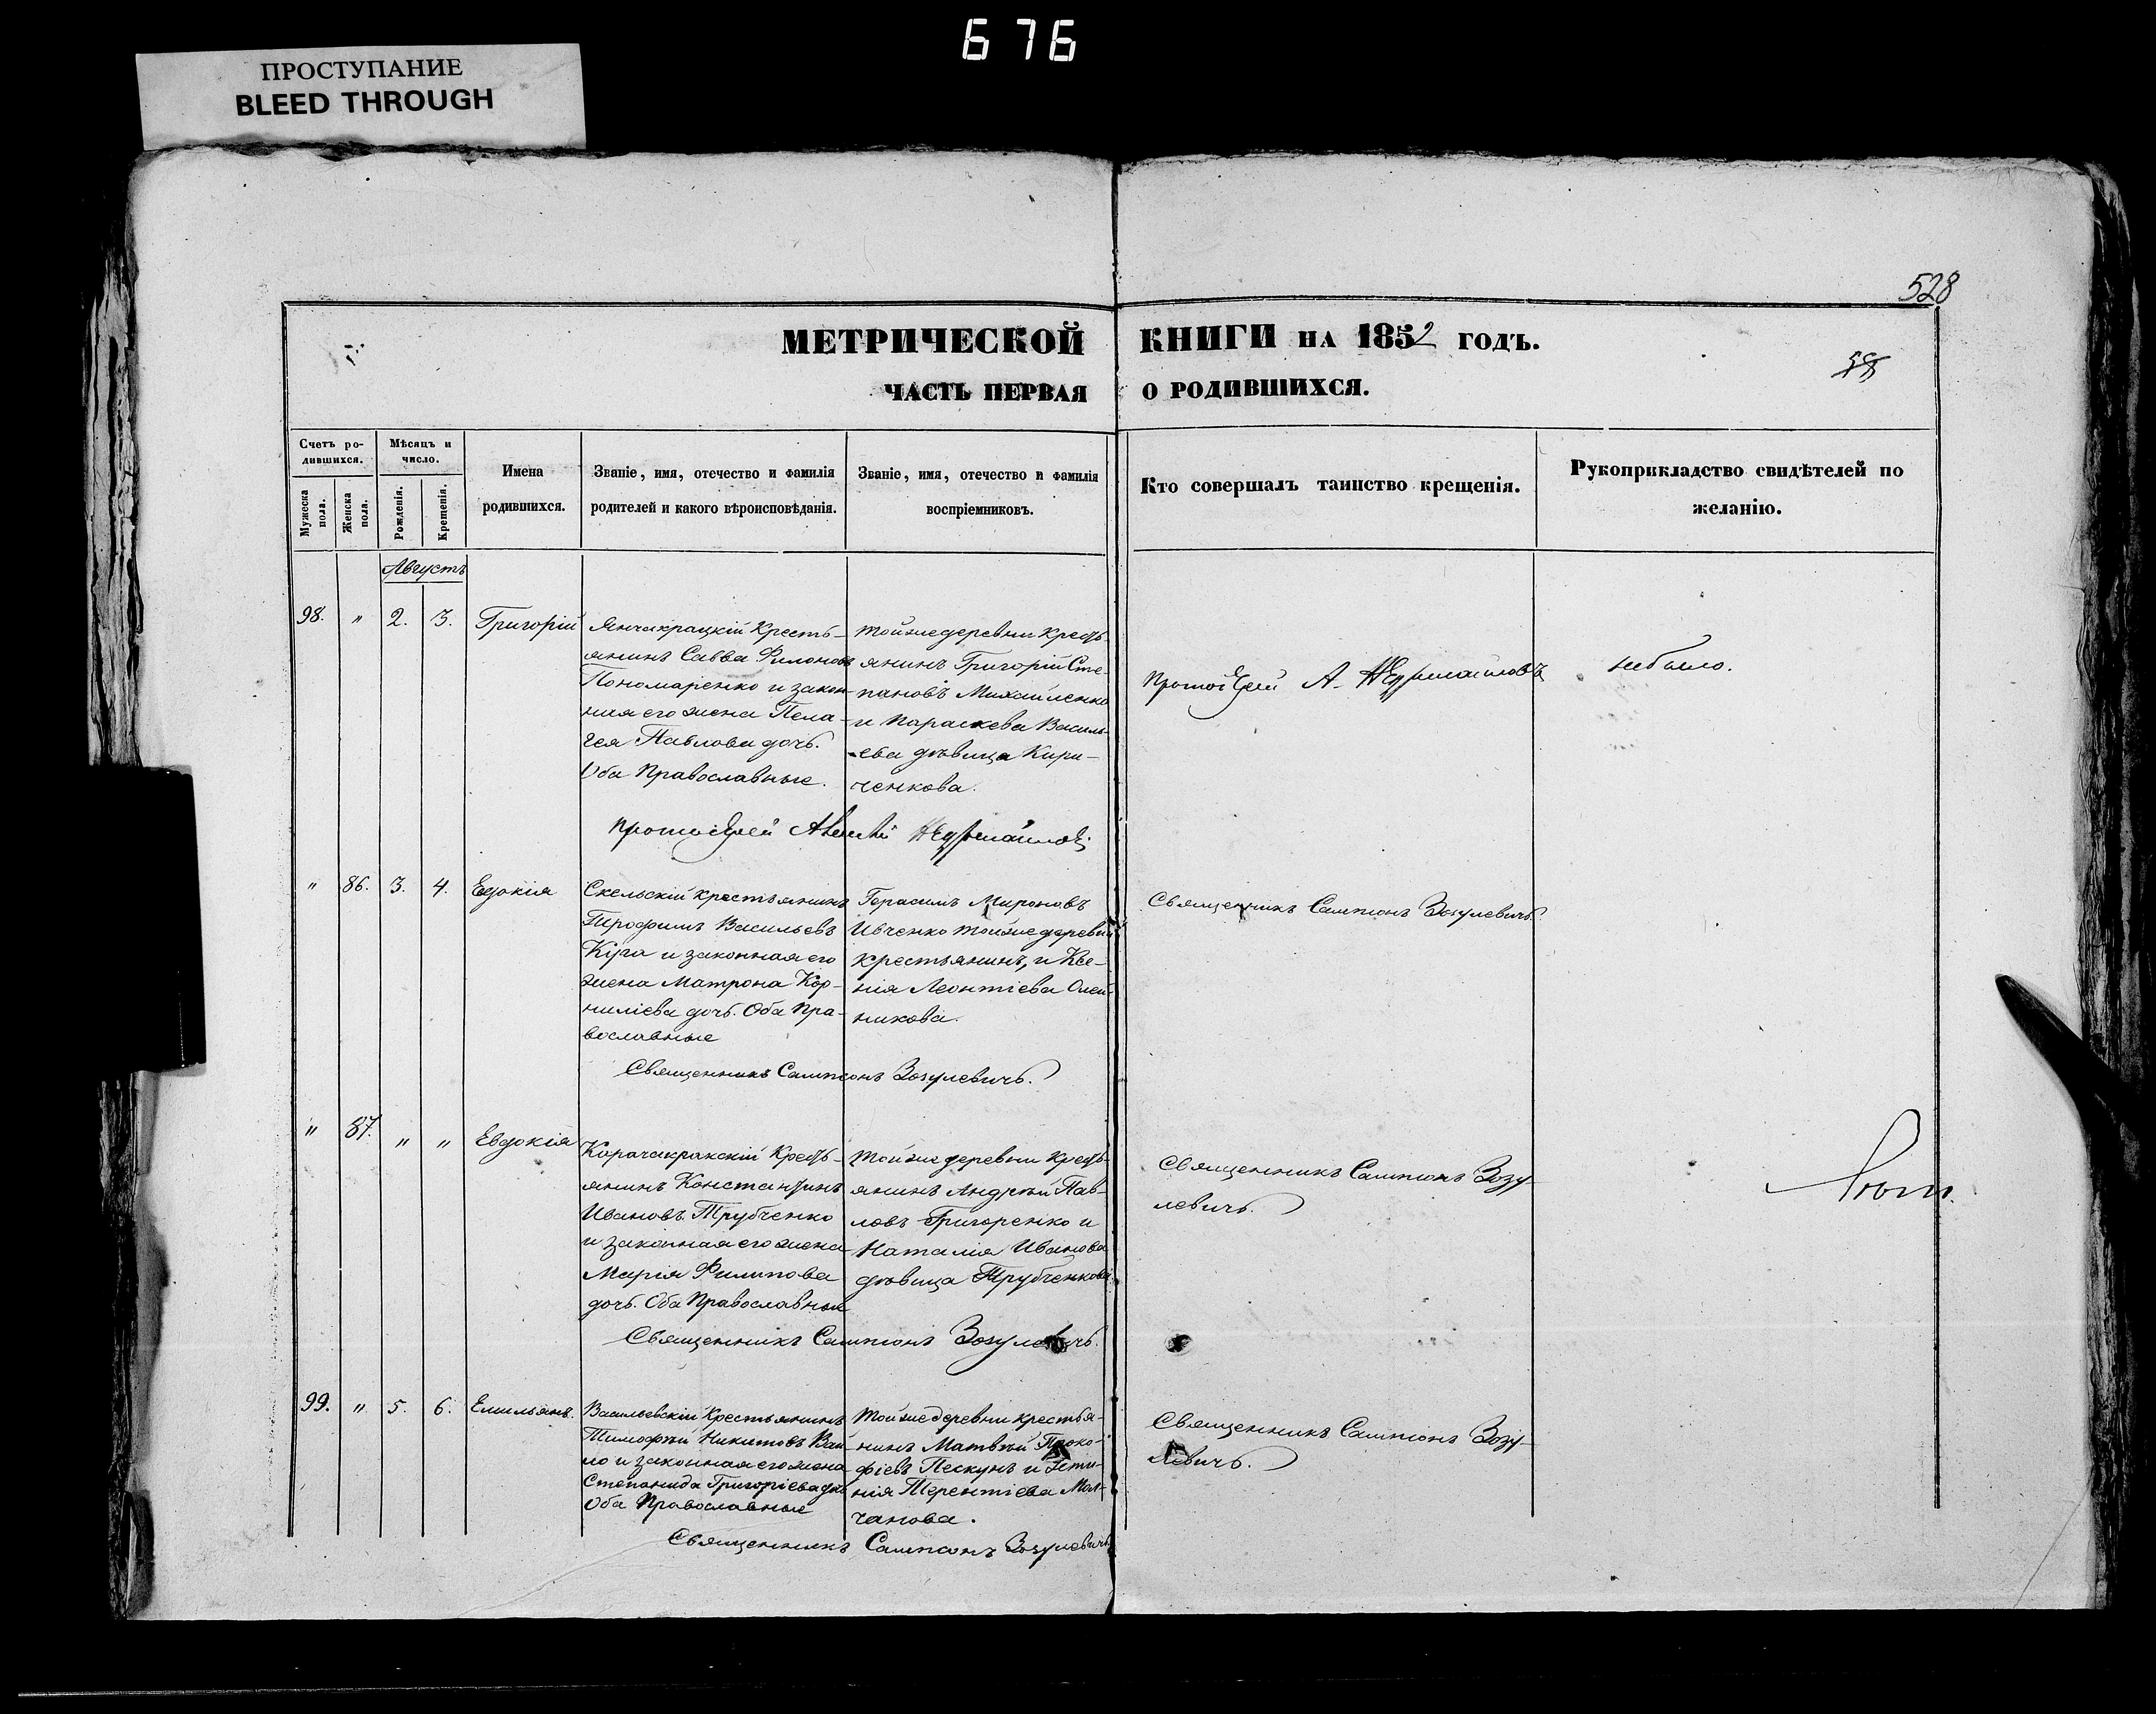 676
ПРОСТУПАНИЕ
BLEED THROUGH
528
МЕТРИЧЕСКОЙ КНИГИ НА 1852 ГОДЪ.
58
ЧАСТЬ ПЕРВАЯ О РОДИВШИХСЯ.
Счетъ ро-
дившихся.
Мужеска пола.
Женска пола.
Мѣсяцъ и
число.
Рожденія.
Крещенія.
Имена
родившихся.
Званіе, имя, отечество и фамилія
родителей и какого вѣроисповѣданія.
Званіе, имя, отечество и фамилія
воспріемниковъ.
Кто совершалъ таинство крещенія.
Рукоприкладство свидѣтелей по
желанію.
Августъ
98. " 2. 3. Григорій
Янчакрацкій Кресть-
янинъ Савва Филоновъ
Пономаренко и закон-
ная его жена Пела-
гея Павлова дочь.
Оба Православные.
тойже деревни Кресть-
янинъ Григорій Сте-
пановъ Михайленко
и Параскева Василь-
ева дѣвица Кири-
ченкова.
Протоіерей А.
небыло.
Протоіерей
" 86. 3. 4. Евдокія
Скельскій крестьянинъ
Трофимъ Васильевъ
Куга и законная его
жена Матрона Кор-
ниліева дочь. Оба Пра-
вославные
Герасимъ Мироновъ
Ивченко тойже деревни
крестьянинъ, и Ксе-
нія Леонтіева Олей-
никова.
Священникъ Сампсонъ Зозулевичъ.
Священникъ Сампсонъ Зозулевичъ.
" 87. " " Евдокія
Карачакракскій Кресть-
янинъ Константинъ
Ивановъ Трубченко
и законная его жена
Марія Филипова
дочь. Оба Православные
тойже деревни Кресть-
янинъ Андрей Пав-
ловъ Григоренко и
Наталія Иванова
дѣвица Трубченкова.
Священникъ Сампсонъ Зозу-
левичъ.
Священникъ Сампсонъ Зозулевичъ.
99. " 5. 6. Емильянъ.
Васильевскій Крестьянинъ
Тимофей Никитовъ
ло и законная его жена
Степанида Григоріева дочь
Оба Православные
тойже деревни крестья-
нинъ Матвѣй Проко-
фіевъ Пескунъ и Усти-
нія Терентіева Мол-
чанова.
Священникъ Сампсонъ Зозу-
левичъ.
Священникъ Сампсонъ Зозулевичъ